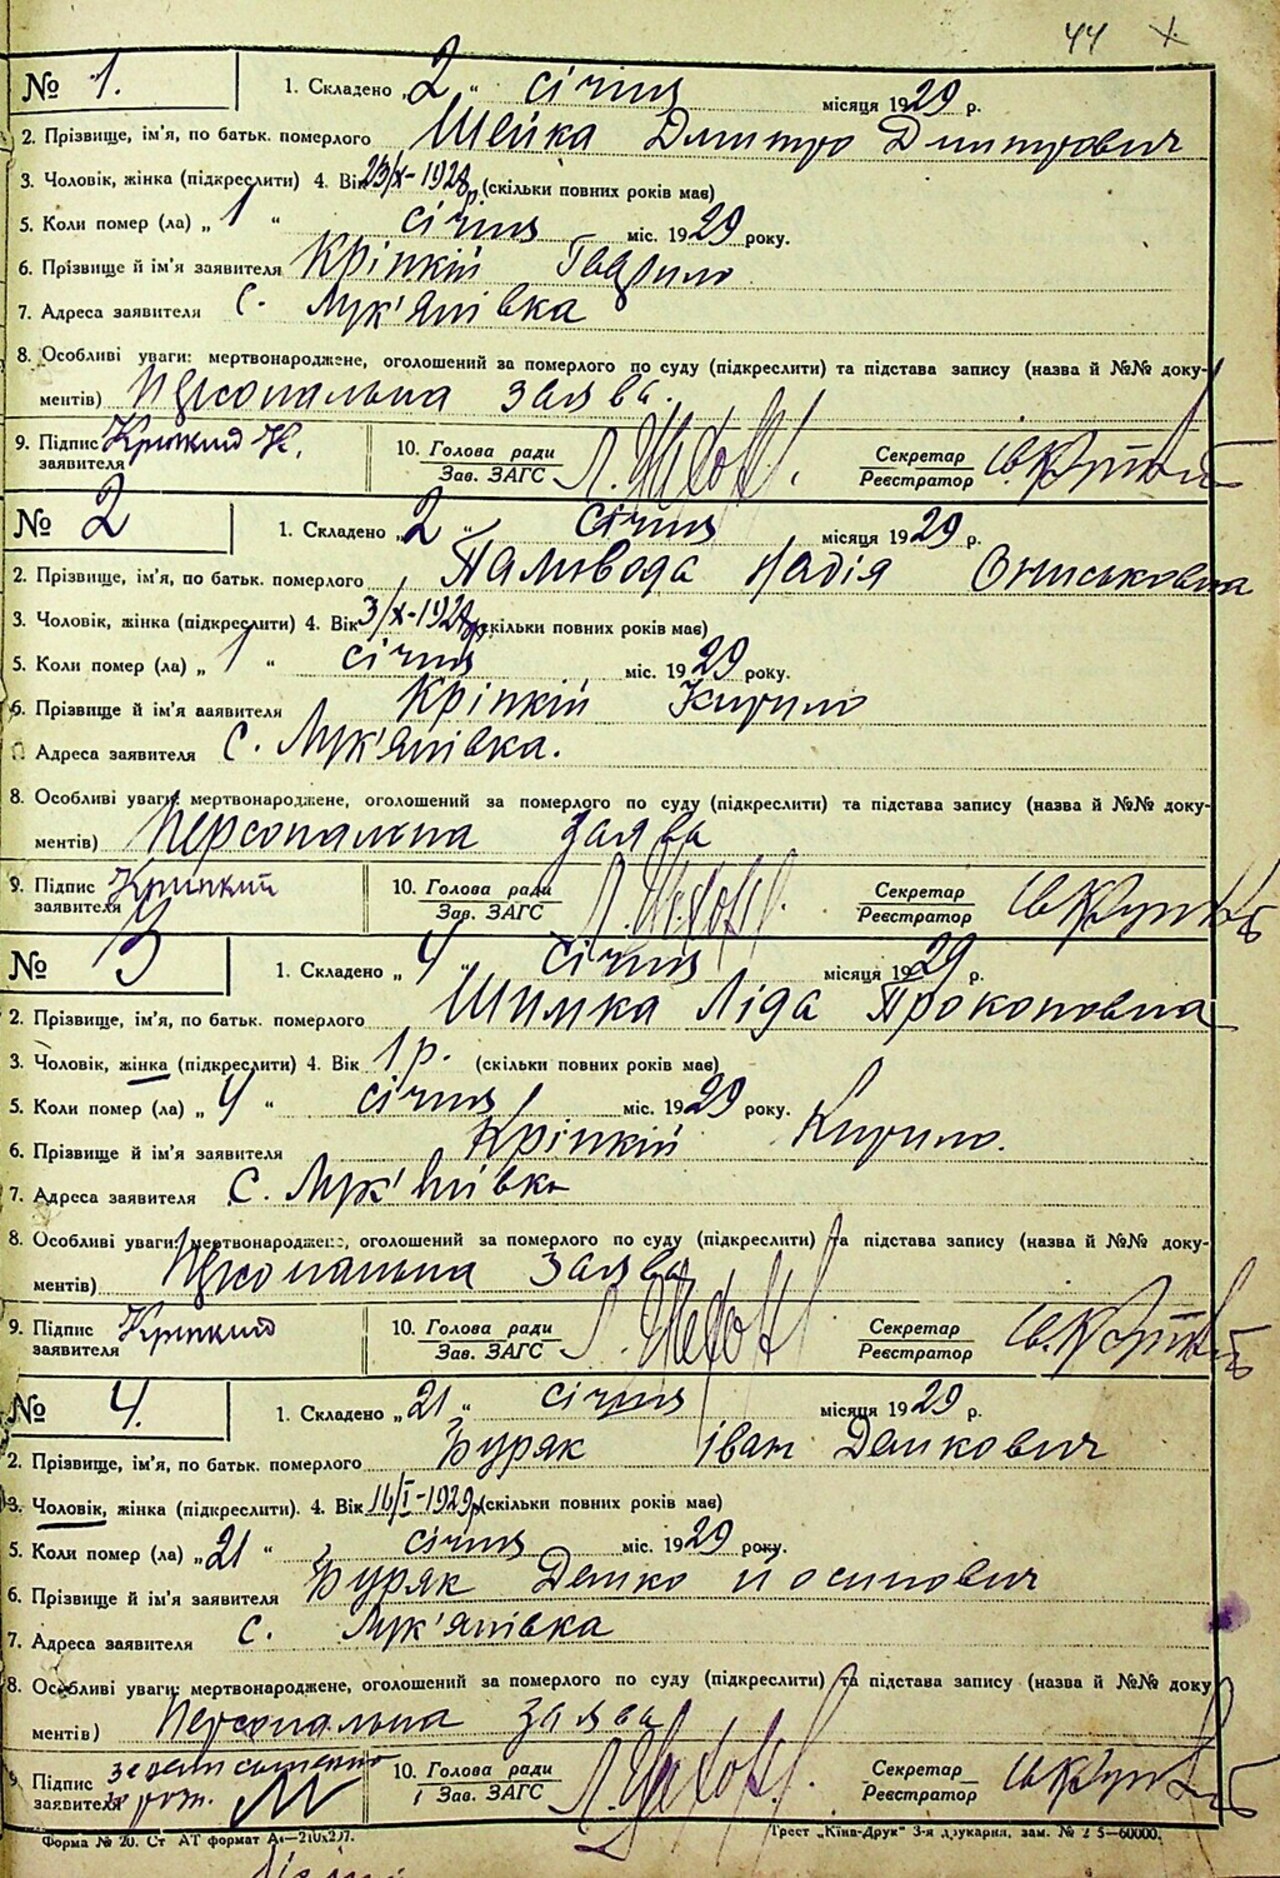 44
№ 1. 1. Складено „2“ січня місяця 1929 р.
2. Прізвище, ім'я, по батьк. померлого Шейка Дмитро Дмитрович
3. Чоловік, жінка (підкреслити) 4. Вік 23/X-1928р. (скільки повних років має)
5. Коли помер (ла) „1“ січня міс. 1929 року.
6. Прізвище й ім'я заявителя Кріпкій Гаврило
7. Адреса заявителя с. Лук'янівка
8. Особливі уваги: мертвонароджене, оголошений за померлого по суду (підкреслити) та підстава запису (назва й №№ доку-
ментів) Персональна заява.
9. Підпис Крипкий К. 10. Голова ради Секретар
заявителя Зав. ЗАГС Реєстратор
№ 2 1. Складено „2“ січня місяця 1929 р.
2. Прізвище, ім'я, по батьк. померлого Паливода Надія Ониськовна
3. Чоловік, жінка (підкреслити) 4. Вік 3/X-1928р. (скільки повних років має)
5. Коли помер (ла) „1“ січня міс. 1929 року.
6. Прізвище й ім'я заявителя Кріпкій Кирило
Адреса заявителя с. Лук'янівка.
8. Особливі уваги: мертвонароджене, оголошений за померлого по суду (підкреслити) та підстава запису (назва й №№ доку-
ментів) Персональна заява
9. Підпис Крипкий 10. Голова ради Секретар
заявителя Зав. ЗАГС Реєстратор
№ 3 1. Складено „4“ січня місяця 1929 р.
2. Прізвище, ім'я, по батьк. померлого Шимка Ліда Прокоповна
3. Чоловік, жінка (підкреслити) 4. Вік 1 р. (скільки повних років має)
5. Коли помер (ла) „4“ січня міс. 1929 року.
6. Прізвище й ім'я заявителя Кріпкій Кирило.
7. Адреса заявителя с. Лук'янівка
8. Особливі уваги: мертвонароджене, оголошений за померлого по суду (підкреслити) та підстава запису (назва й №№ доку-
ментів) Персональна заява
9. Підпис Крипкий 10. Голова ради Секретар
заявителя Зав. ЗАГС Реєстратор
№ 4. 1. Складено „21“ січня місяця 1929 р.
2. Прізвище, ім'я, по батьк. померлого Буряк Іван Демкович
3. Чоловік, жінка (підкреслити). 4. Вік 16/I-1929р. (скільки повних років має)
5. Коли помер (ла) „21“ січня міс. 1929 року.
6. Прізвище й ім'я заявителя Буряк Демко Йосипович
7. Адреса заявителя с. Лук'янівка
8. Особливі уваги: мертвонароджене, оголошений за померлого по суду (підкреслити) та підстава запису (назва й №№ доку
ментів) Персональна заява
9 Підпис 10. Голова ради Секретар
заявителя Зав. ЗАГС Реєстратор
Форма № 20. Ст АТ формат А₄—210х297. Трест „Київ-Друк“ 3-я друкарня, зам. № 2 5—60000.